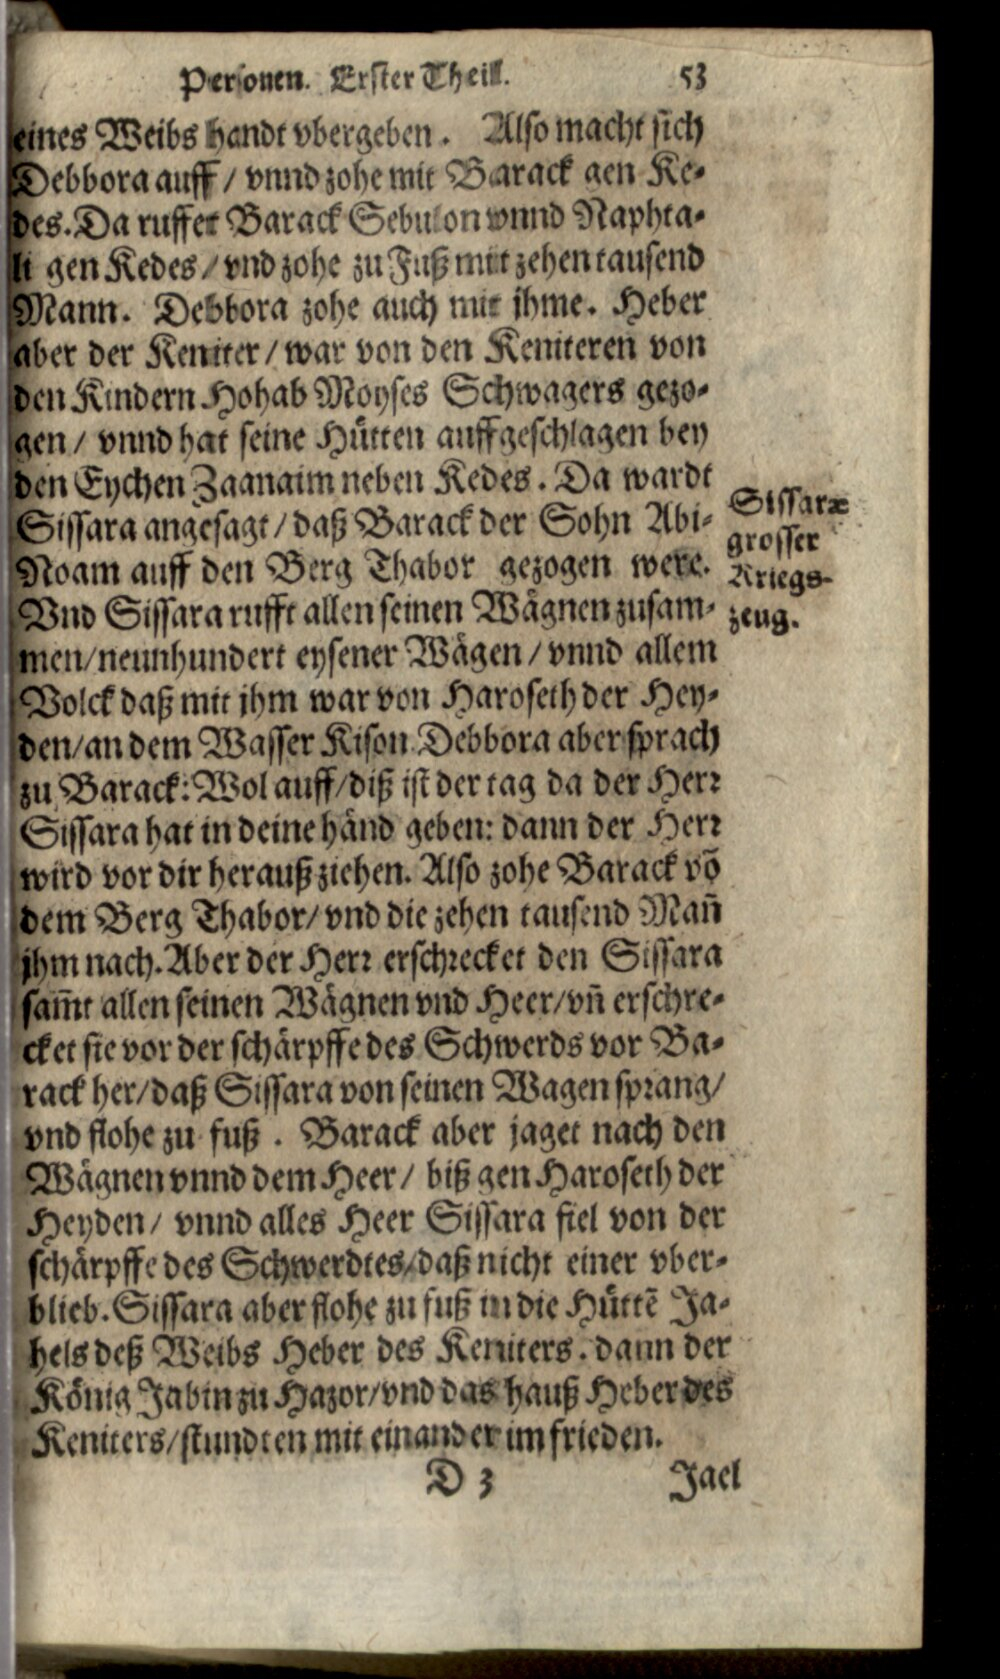 Personen. Erster Theil. 53
eines Weibs handt vbergeben. Also macht sich
Debbora auff / vnnd zohe mit Barack gen Ke-
des. Da ruffet Barack Sebulon vnnd Naphta-
li gen Kedes / vnd zohe zu Fuß mit zehen tausend
Mann. Debbora zohe auch mit jhme. Heber
aber der Keniter / war von den Keniteren von
den Kindern Hohab Moyses Schwagers gezo-
gen / vnnd hat seine Hütten auffgeschlagen bey
den Eychen Zaanaim neben Kedes. Da wardt
Sissara angesagt / daß Barack der Sohn Abi-
Noam auff den Berg Thabor gezogen were.
Vnd Sissara rufft allen seinen Wägnen zusam-
men / neunhundert eysener Wägen / vnnd allem
Volck daß mit jhm war von Haroseth der Hey-
den / an dem Wasser Kison. Debbora aber sprach
zu Barack: Wol auff / diß ist der tag da der Herr
Sissara hat in deine händ geben: dann der Herr
wird vor dir herauß ziehen. Also zohe Barack võ
dem Berg Thabor / vnd die zehen tausend Mañ
jhm nach. Aber der Herr erschrecket den Sissara
sam̃t allen seinen Wägnen vnd Heer / vñ erschre-
cket sie vor der schärpffe des Schwerds vor Ba-
rack her / daß Sissara von seinen Wagen sprang /
vnd flohe zu fuß. Barack aber jaget nach den
Wägnen vnnd dem Heer / biß gen Haroseth der
Heyden / vnnd alles Heer Sissara fiel von der
schärpffe des Schwerdtes / daß nicht einer vber-
blieb. Sissara aber flohe zu fuß in die Hüttẽ Ja-
hels deß Weibs Heber des Keniters. dann der
König Jabin zu Hazor / vnd das hauß Heber des
Keniters / stundten mit einander im frieden.
D 3 Jael
Sissaræ
grosser
Kriegs-
zeug.